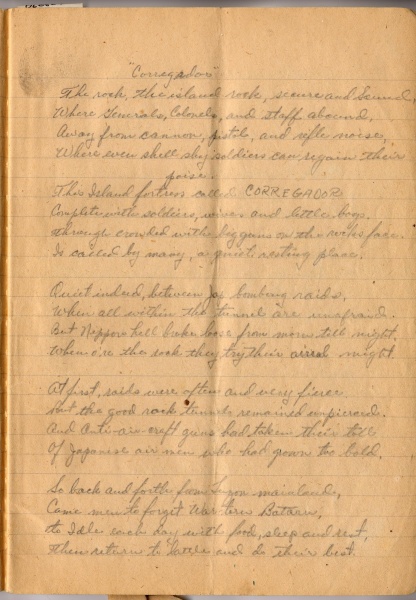 "Corregador"
The rock, the island rock, secure and sound,
Where Generals, Colonels, and staff abound,
Away from cannon, pistol, and rifle noise,
Where even shell shy soldiers can regain their
poise.
This Island fortress called CORREGADOR
Complete with soldiers, wives and little boys.
Through crowded with big guns on the rocks face
Is called by many, a quiet resting place.
Quiet indeed, between bombing raids,
When all within the tunnel are unafraid.
But Nippons hell broken loose from morn till night,
When o're the rock they try their airial might.
At first, raids were often and very fierce
but the good rock tunnels remained unpierced.
And Anti-air-craft guns had taken their toll
Of Japanese air men who had grown too bold.
So back and forth from Luzon mainlands,
Came men to forget War-torn Bataan,
to Idle each day with food, sleep and rest,
Then return to battle and do their best.